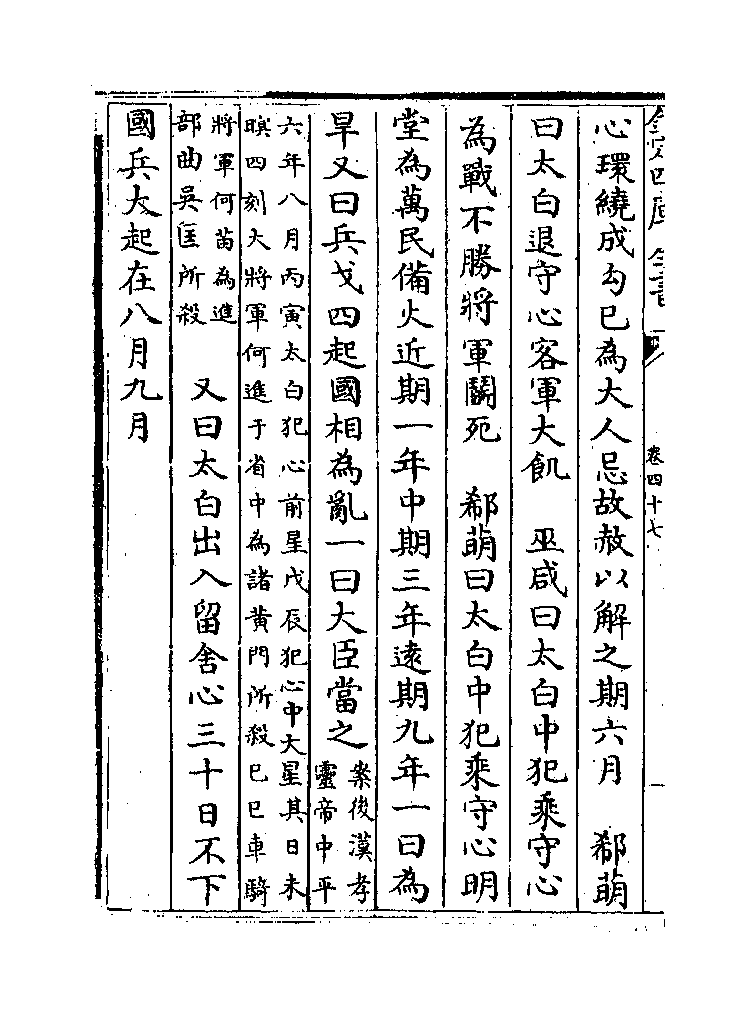 欽定四庫全書
卷四十七
心環繞成勾巳為大人忌故赦以解之期六月　郗萌
曰太白退守心客軍大飢　巫咸曰太白中犯乘守心
為戰不勝將軍鬭死　郗萌曰太白中犯乘守心明
堂為萬民備火近期一年中期三年遠期九年一曰為
旱又曰兵戈四起國相為亂一曰大臣當之
案後漢孝
靈帝中平
六年八月丙寅太白犯心前星戊辰犯心中大星其日未
暝四刻大將軍何進于省中為諸黄門所殺巳巳車騎
將軍何苗為進
部曲吳匡所殺
又曰太白出入留舍心三十日不下
國兵大起在八月九月